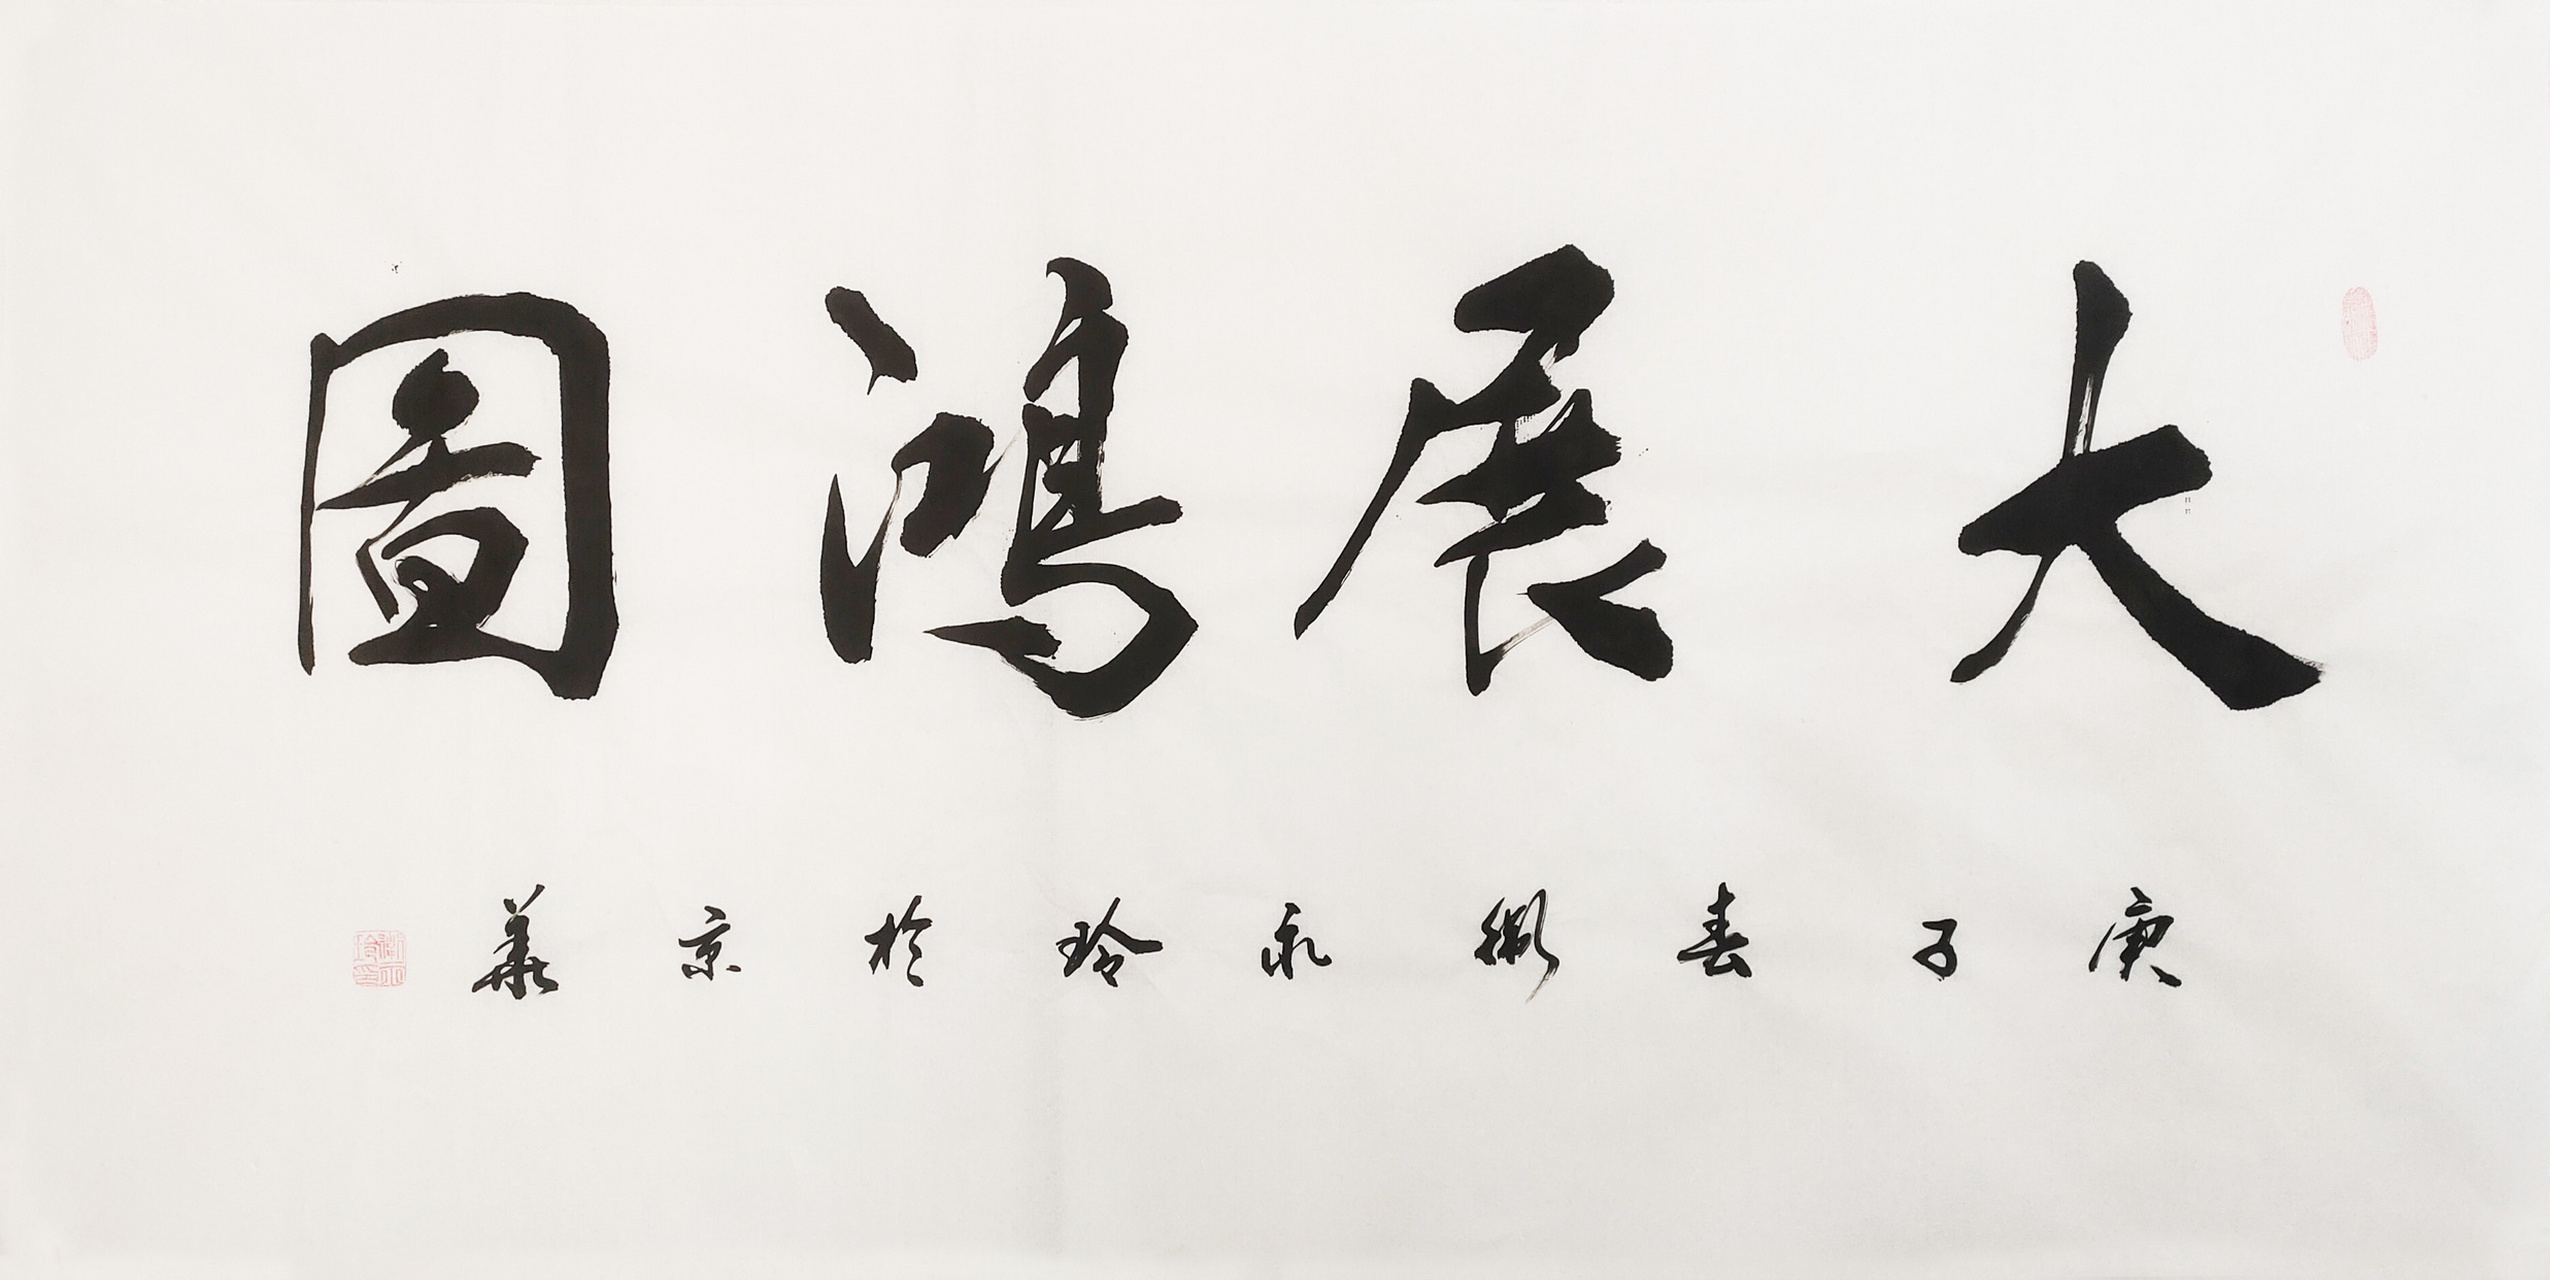 大展鴻圖
庚子春衛永玲於京華